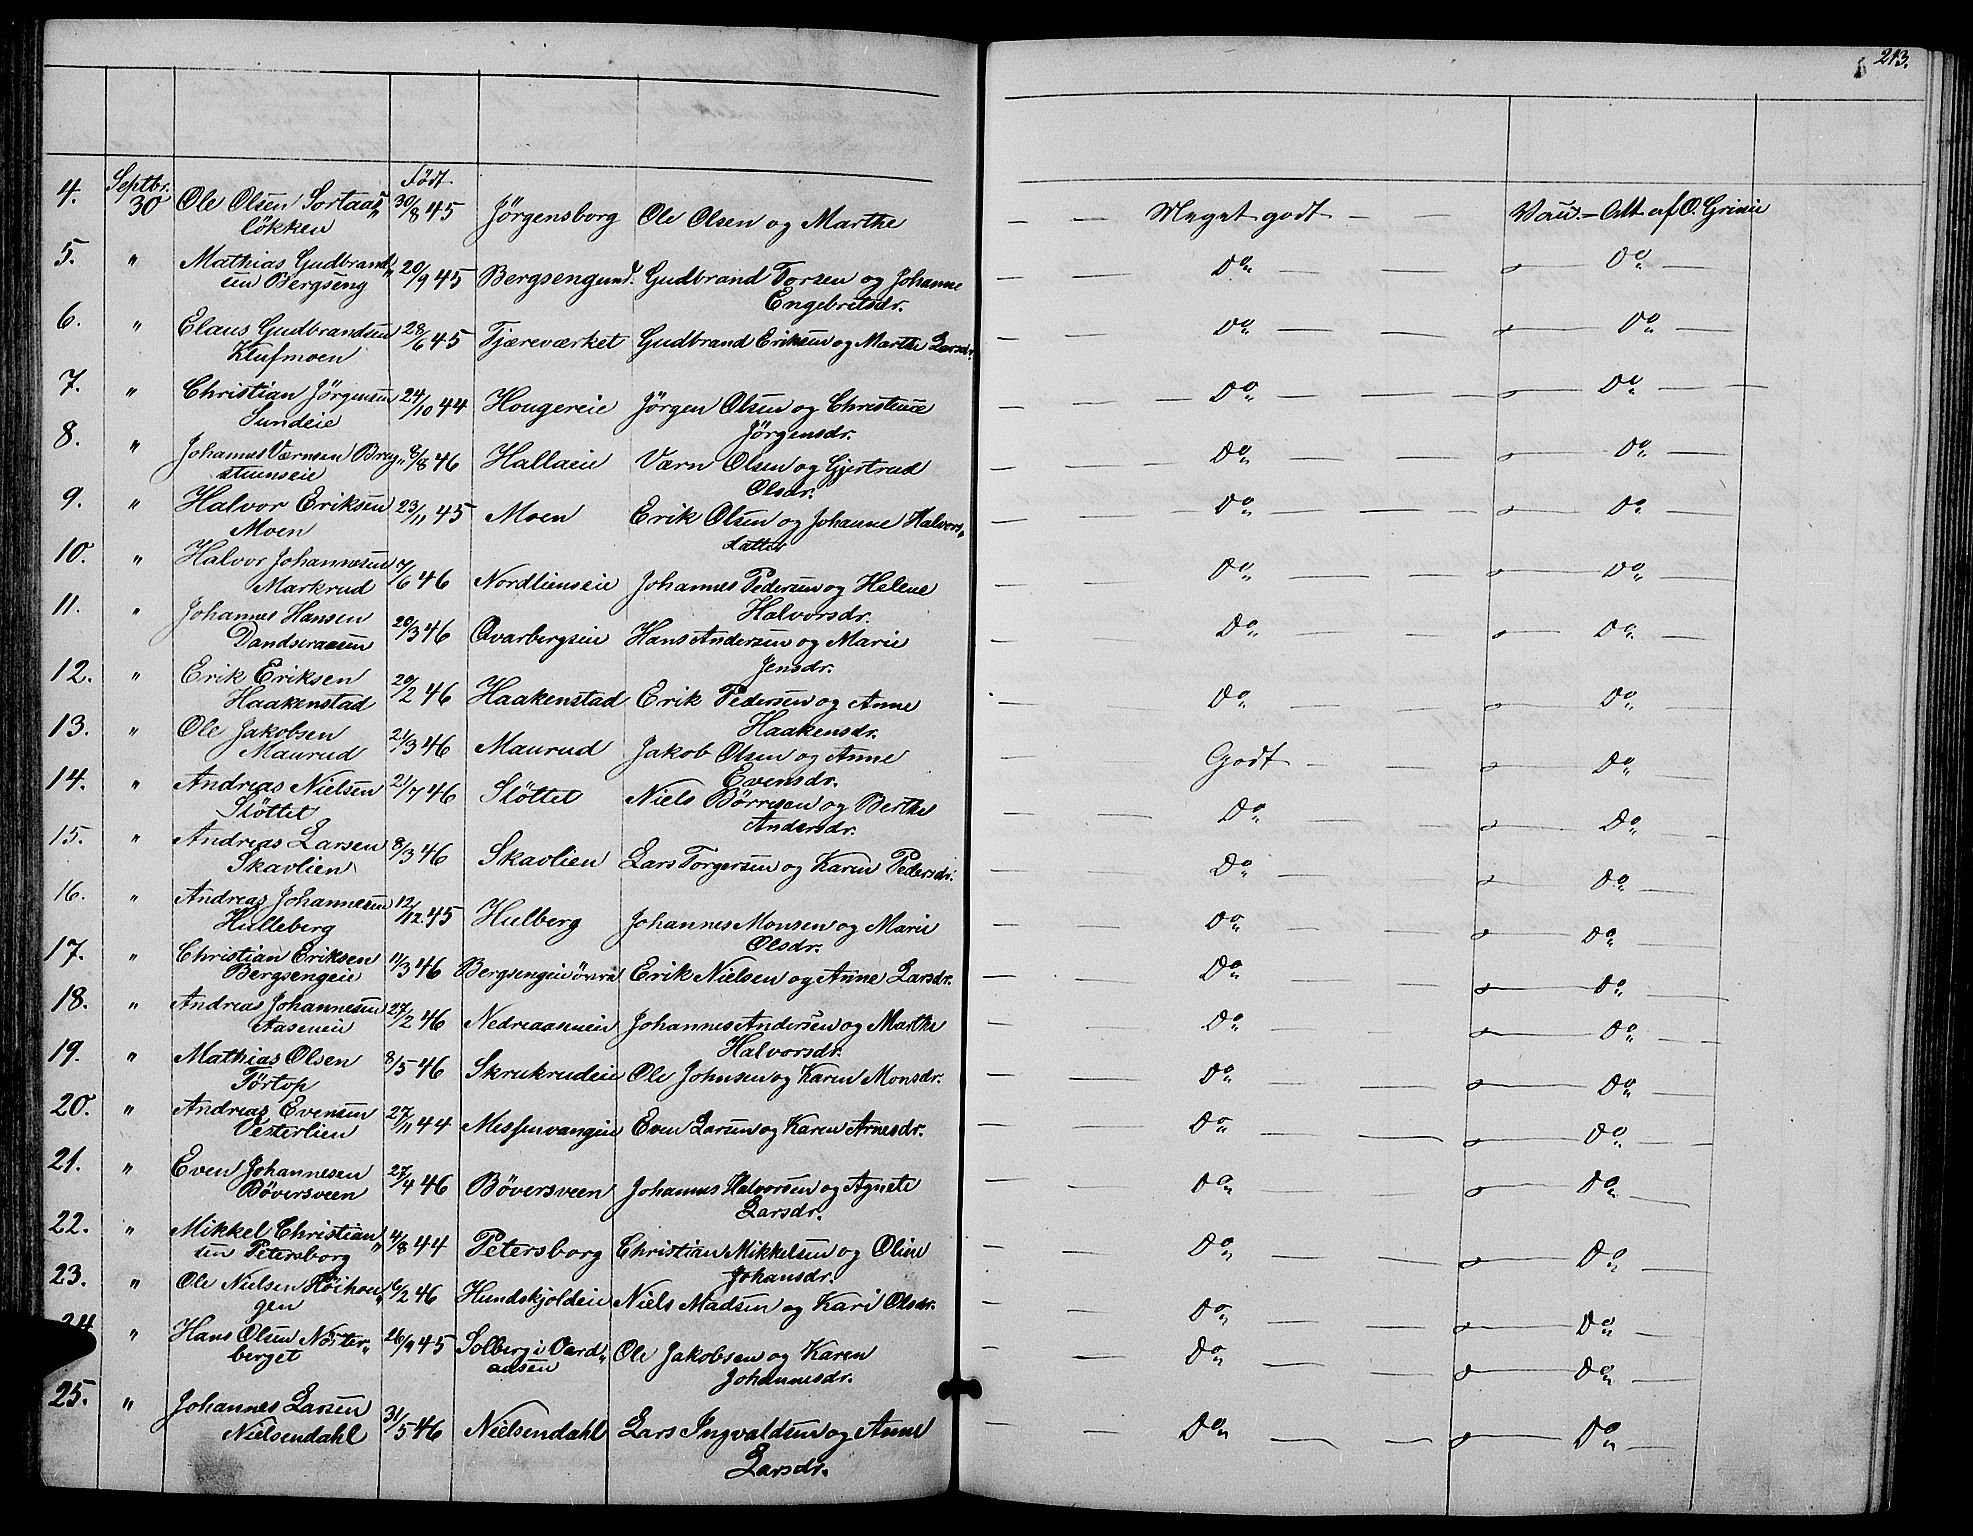 213.
4. Septbr. 30 Ole Olsen Sortaas„ Födt 30/8 45 Jörgensborg Ole Olsen og Marthe — — Meget godt — — Vacc. – Att. af O.
lökken
5. „ Mathias Gudbrand„ 20/9 45 Bergsengund. Gudbrand Torsen og Johanne — — Do — — Do —
sen Bergseng Engebretsdr.
6. „ Claus Gudbrandsen 28/6 45 Tjæreværket Gudbrand Eriksen og Marthe Larsdr. — — Do — — Do —
Klufmoen
7. „ Christian Jörgensen 24/10 44 Hougereie Jörgen Olsen og Christence — — Do — — Do —
Sundeie Jörgensdr.
8. „ Johannes Værnsen Brag„ 8/8 46 Hallaeie Værn Olsen og Gjertrud — — Do — — Do —
stuenseie Olsdr.
9. „ Halvor Eriksen 23/11 45 Moen Erik Olsen og Johanne Halvors„ — — Do — — Do —
Moen datter
10. „ Halvor Johannesen 7/6 46 Nordlienseie Johannes Pedersen og Helene — — Do — — Do —
Markrud Halvorsdr.
11. „ Johannes Hansen 20/3 46 Qvarbergseie Hans Andersen og Marie — — Do — — Do —
Dandseraasen Jensdr.
12. „ Erik Eriksen 20/2 46 Haakenstad Erik Pedersen og Anne — — Do — — Do —
Haakenstad Haakensdr.
13. „ Ole Jakobsen 21/3 46 Maurud Jakob Olsen og Anne — — Godt — — Do —
Maurud Evensdr.
14. „ Andreas Nielsen 21/7 46 Slöttet Niels Börresen og Berthe — — Do — — Do —
Slöttet Andersdr.
15. „ Andreas Larsen 8/3 46 Skavlien Lars Torgersen og Karen Pedersdr. — — Do — — Do —
Skavlien
16. „ Andreas Johannesen 12/12 45 Hulberg Johannes Monsen og Marie — — Do — — Do —
Hulleberg Olsdr.
17. „ Christian Eriksen 11/3 46 Bergsengeie övre Erik Nielsen og Anne Larsdr. — — Do — — Do —
Bergsengeie
18. „ Andreas Johannesen 27/2 46 Nedreaaseneie Johannes Andersen og Marthe — — Do — — Do —
Aaseneie Halvorsdr.
19. „ Mathias Olsen 8/5 46 Skrukrudeie Ole Johnsen og Karen Monsdr. — — Do — — Do —
Törtop
20. „ Andreas Evensen 27/11 44 Messenvangeie Even Larsen og Karen Arnesdr. — — Do — — Do —
Vesterlien
21. „ Even Johannesen 27/4 46 Böversveen Johannes Halvorsen og Agnete — — Do — — Do —
Böversveen Larsdr.
22. „ Mikkel Christian„ 4/8 44 Petersborg Christian Mikkelsen og Oline — — Do — — Do —
sen Petersborg Johansdr.
23. „ Ole Nielsen Höihou„ 16/2 46 Hundskjoldeie Niels Madsen og Kari Olsdr. — — Do — — Do —
gen
24. „ Hans Olsen Nörster„ 26/9 45 Solberg i Vard„ Ole Jakobsen og Karen — — Do — — Do —
berget aasen Johannesdr.
25. „ Johannes Larsen 31/5 46 Nielsendahl Lars Ingvaldsen og Anne — — Do — — Do —
Nielsendahl Larsdr.